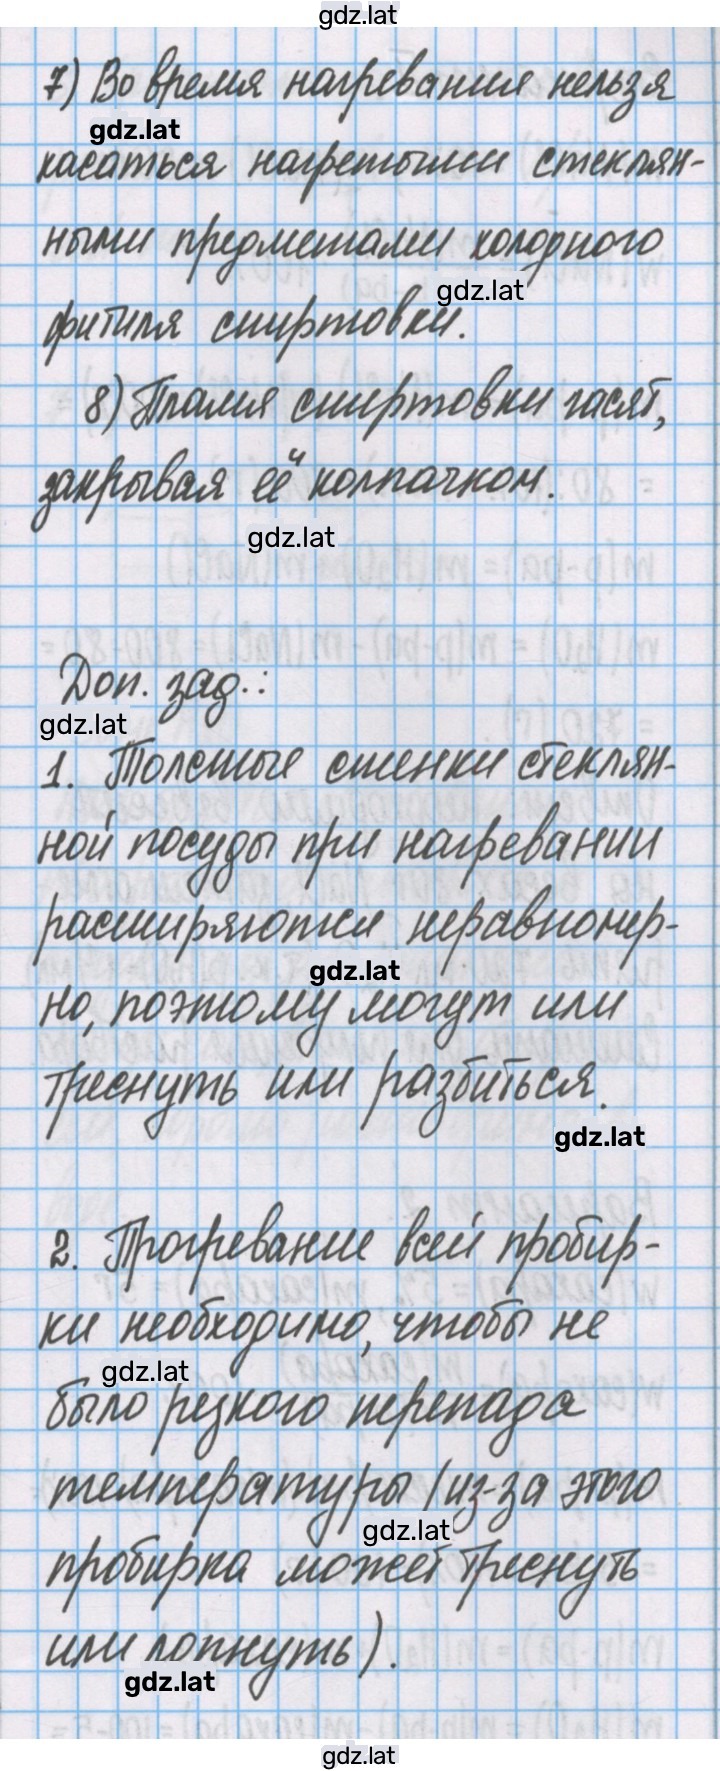 gdz.lat
7) Во время нагревания нельзя
gdz.lat
касаться нагретыми стеклян-
ными предметами холодного
gdz.lat
фитиля спиртовки.
8) Пламя спиртовки гасят,
закрывая её колпачком.
gdz.lat
Доп. зад.:
gdz.lat
1. Толстые стенки стеклян-
ной посуды при нагревании
расширяются неравномер-
gdz.lat
но, поэтому могут или
треснуть или разбиться.
gdz.lat
2. Прогревание всей пробир-
ки необходимо, чтобы не
gdz.lat
было резкого перепада
температуры (из-за этого
gdz.lat
пробирка может треснуть
или лопнуть).
gdz.lat
gdz.lat